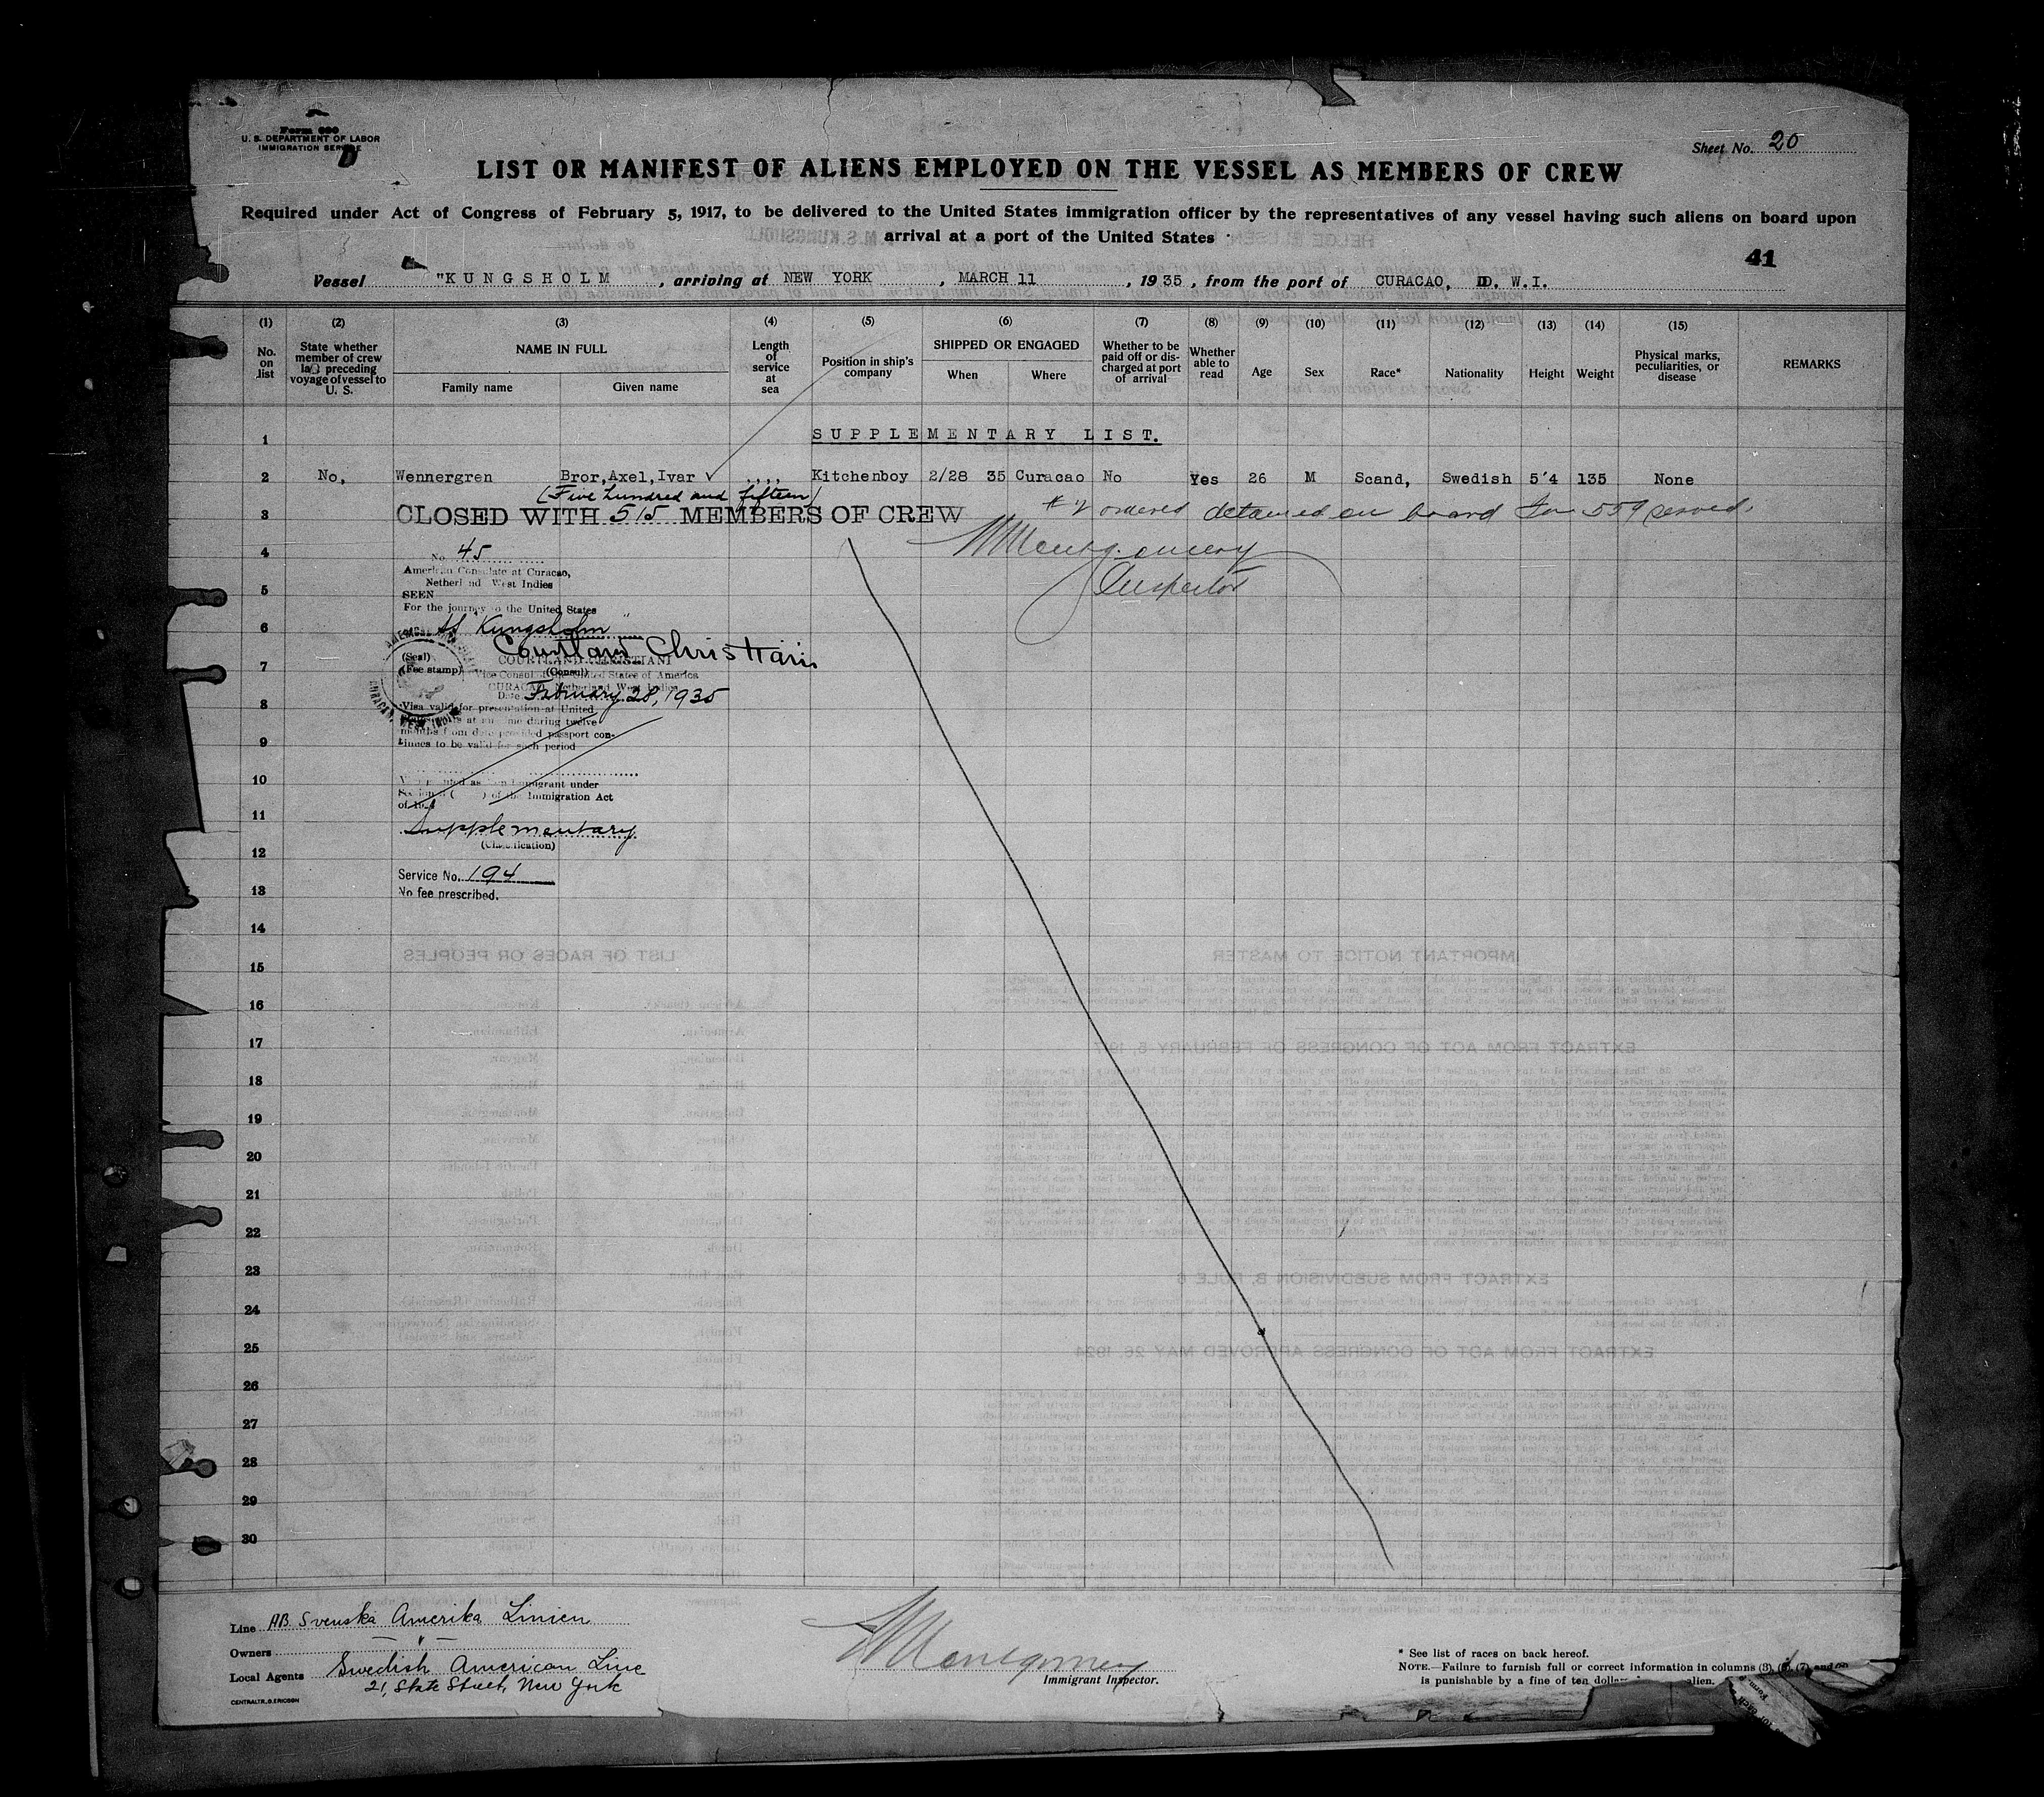 Form 680
U. S. DEPARTMENT OF LABOR
IMMIGRATION SERVICE
D
Sheet No. 20
LIST OR MANIFEST OF ALIENS EMPLOYED ON THE VESSEL AS MEMBERS OF CREW
Required under Act of Congress of February 5, 1917, to be delivered to the United States immigration officer by the representatives of any vessel having such aliens on board upon
arrival at a port of the United States
41
Vessel "KUNGSHOLM , arriving at NEW YORK , MARCH 11 , 1935 , from the port of CURACAO, D. W.I.
(1) No. on list
(2) State whether member of crew last preceding voyage of vessel to U. S.
(3) NAME IN FULL Family name Given name
(4) Length of service at sea
(5) Position in ship's company
(6) SHIPPED OR ENGAGED When Where
(7) Whether to be paid off or discharged at port of arrival
(8) Whether able to read
(9) Age
(10) Sex
(11) Race*
(12) Nationality
(13) Height
(14) Weight
(15) Physical marks, peculiarities, or disease
REMARKS
1 SUPPLEMENTARY LIST.
2 No, Wennergren Bror,Axel,Ivar ✓ ,,,, Kitchenboy 2/28 35 Curacao No Yes 26 M Scand, Swedish 5'4 135 None
(Five hundred and fifteen)
3 CLOSED WITH 515 MEMBERS OF CREW # 2 ordered detained on board for 559 served.
4 No. 45 Montgomery
American Consulate at Curacao,
Netherland West Indies
5 SEEN Inspector
For the journey to the United States
6 Kungsholm "
Courtland Christiani
(Seal) COURTLAND CHRISTIANI
7 (Fee stamp) (Consul)
Vice Consul of the United States of America
CURACAO, Netherland West Indies
Date February 28, 1935
8 Visa valid for presentation at United
States at any time during twelve
months from date provided passport con-
9 tinues to be valid for such period
10 immigrant under
of the Immigration Act
11 Supplementary
12 (Classification)
Service No. 194
13 No fee prescribed.
14
15
16
17
18
19
20
21
22
23
24
25
26
27
28
29
30
Line AB. Svenska Amerika Linien
Owners — " —
Local Agents Swedish American Line
21, State Street, New York
CENTRALTR. G. ERICSON
Montgomery
Immigrant Inspector.
* See list of races on back hereof.
NOTE.—Failure to furnish full or correct information in columns (3), (6), (7), and
is punishable by a fine of ten dollars alien.